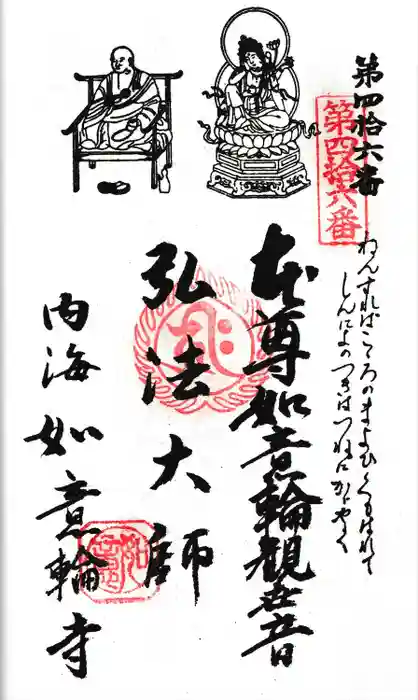 第四拾六番
第四拾六番
ねんずればこころのきよむくもはれて
しんによのつきはつねにかゞやく
本尊如意輪観世音
弘法大師
内海如意輪寺